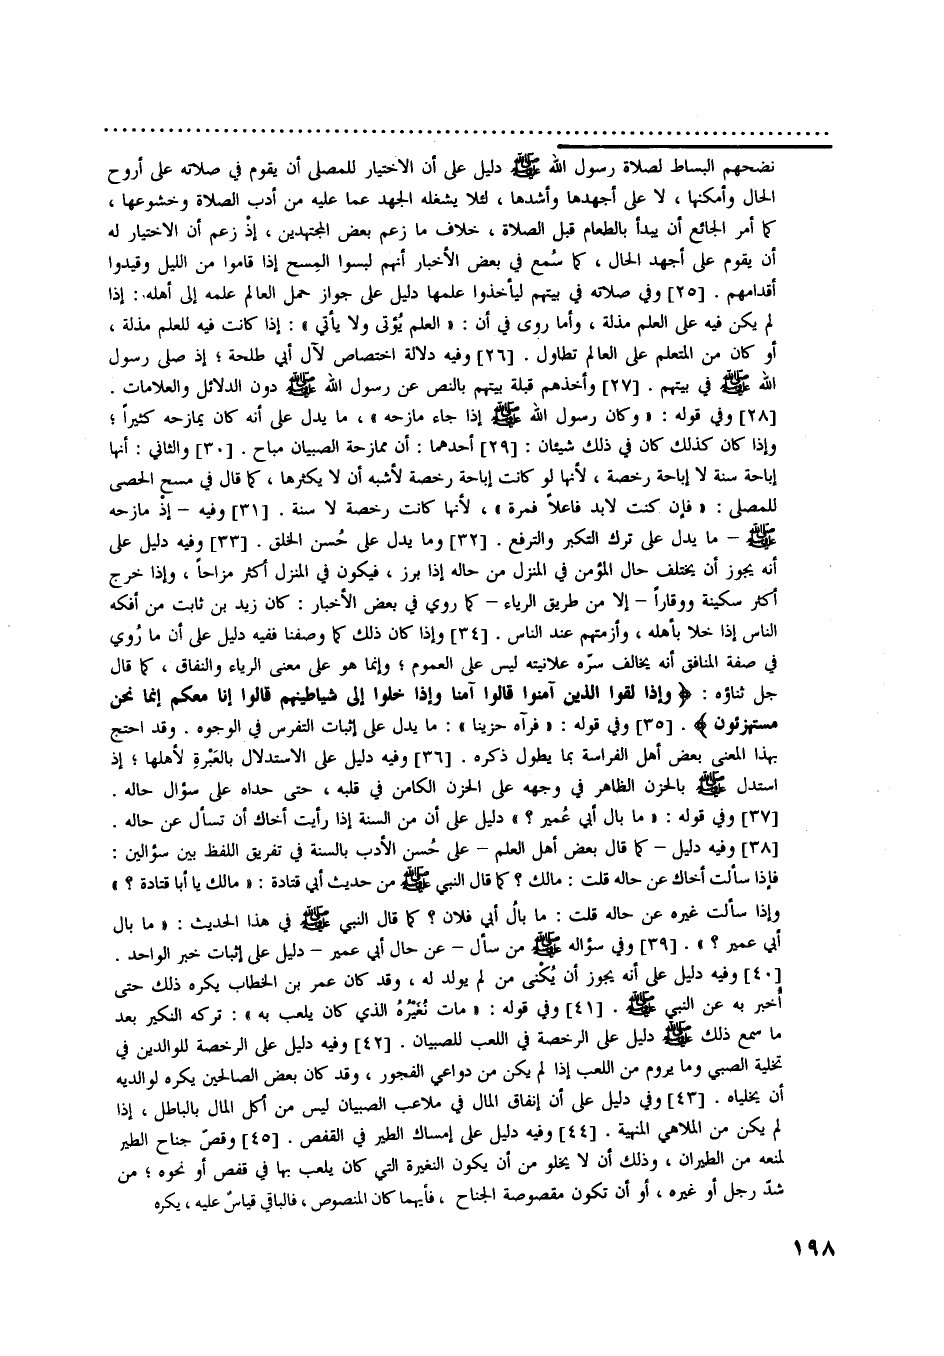 نضحهم البساط لصلاة رسول الله ﷺ دليل على أن الاختيار للمصلى أن يقوم في صلاته على أروح
الحال وأمكنها ، لا على أجهدها وأشدها ، لئلا يشغله الجهد عما عليه من أدب الصلاة وخشوعها ،
كما أمر الجائع أن يبدأ بالطعام قبل الصلاة ، خلاف ما زعم بعض المجتهدين ، إذْ زعم أن الاختيار له
أن يقوم على أجهد الحال ، كما سُمع في بعض الأخبار أنهم لبسوا المِسح إذا قاموا من الليل وقيدوا
أقدامهم . [٢٥] وفي صلاته في بيتهم ليأخذوا علمها دليل على جواز حمل العالم علمه إلى أهله : إذا
لم يكن فيه على العلم مذلة ، وأما روى في أن : « العلم يُؤتى ولا يأتي » : إذا كانت فيه للعلم مذلة ،
أو كان من المتعلم على العالم تطاول . [٢٦] وفيه دلالة اختصاص لآل أبي طلحة ؛ إذ صلى رسول
الله ﷺ في بيتهم . [٢٧] وأخذهم قبلة بيتهم بالنص عن رسول الله ﷺ دون الدلائل والعلامات .
[٢٨] وفي قوله : « وكان رسول الله ﷺ إذا جاء مازحه » ، ما يدل على أنه كان يمازحه كثيراً ؛
وإذا كان كذلك كان في ذلك شيئان : [٢٩] أحدهما : أن ممازحة الصبيان مباح . [٣٠] والثاني : أنها
إباحة سنة لا إباحة رخصة ، لأنها لو كانت إباحة رخصة لأشبه أن لا يكثرها ، كما قال في مسح الحصى
للمصلى : « فإن كنت لابد فاعلاً فمرة » ، لأنها كانت رخصة لا سنة . [٣١] وفيه – إذْ مازحه
ﷺ – ما يدل على ترك التكبر والترفع . [٣٢] وما يدل على حُسن الخلق . [٣٣] وفيه دليل على
أنه يجوز أن يختلف حال المؤمن في المنزل من حاله إذا برز ، فيكون في المنزل أكثر مزاحاً ، وإذا خرج
أكثر سكينة ووقاراً – إلا من طريق الرياء – كما روي في بعض الأخبار : كان زيد بن ثابت من أفكه
الناس إذا خلا بأهله ، وأزمتهم عند الناس . [٣٤] وإذا كان ذلك كما وصفنا ففيه دليل على أن ما رُوي
في صفة المنافق أنه يخالف سرّه علانيته ليس على العموم ؛ وإنما هو على معنى الرياء والنفاق ، كما قال
جل ثناؤه : ﴿ وإذا لقوا الذين آمنوا قالوا آمنا وإذا خلوا إلى شياطينهم قالوا إنا معكم إنما نحن
مستهزئون ﴾ . [٣٥] وفي قوله : « فرآه حزينا » : ما يدل على إثبات التفرس في الوجوه . وقد احتج
بهذا المعنى بعض أهل الفراسة بما يطول ذكره . [٣٦] وفيه دليل على الاستدلال بالعَبْرةِ لأهلها ؛ إذ
استدل ﷺ بالحزن الظاهر في وجهه على الحزن الكامن في قلبه ، حتى حداه على سؤال حاله .
[٣٧] وفي قوله : « ما بال أبي عُمير ؟ » دليل على أن من السنة إذا رأيت أخاك أن تسأل عن حاله .
[٣٨] وفيه دليل – كما قال بعض أهل العلم – على حُسن الأدب بالسنة في تفريق اللفظ بين سؤالين :
فإذا سألت أخاك عن حاله قلت : مالك ؟ كما قال النبي ﷺ من حديث أبي قتادة : « مالك يا أبا قتادة ؟ »
وإذا سألت غيره عن حاله قلت : ما بالُ أبي فلان ؟ كما قال النبي ﷺ في هذا الحديث : « ما بال
أبي عمير ؟ » . [٣٩] وفي سؤاله ﷺ من سأل – عن حال أبي عمير – دليل على إثبات خبر الواحد .
[٤٠] وفيه دليل على أنه يجوز أن يُكْنى من لم يولد له ، وقد كان عمر بن الخطاب يكره ذلك حتى
أُخبر به عن النبي ﷺ . [٤١] وفي قوله : « مات نُغَيْرُهُ الذي كان يلعب به » : تركه النكير بعد
ما سمع ذلك ﷺ دليل على الرخصة في اللعب للصبيان . [٤٢] وفيه دليل على الرخصة للوالدين في
تخلية الصبي وما يروم من اللعب إذا لم يكن من دواعي الفجور ، وقد كان بعض الصالحين يكره لوالديه
أن يخلياه . [٤٣] وفي دليل على أن إنفاق المال في ملاعب الصبيان ليس من أكل المال بالباطل ، إذا
لم يكن من الملاهي المنهية . [٤٤] وفيه دليل على إمساك الطير في القفص . [٤٥] وقصّ جناح الطير
لمنعه من الطيران ، وذلك أن لا يخلو من أن يكون النغيرة التي كان يلعب بها في قفص أو نحوه ؛ من
شدّ رجل أو غيره ، أو أن تكون مقصوصة الجناح ، فأيهما كان المنصوص ، فالباقي قياسٌ عليه ، يكره
١٩٨